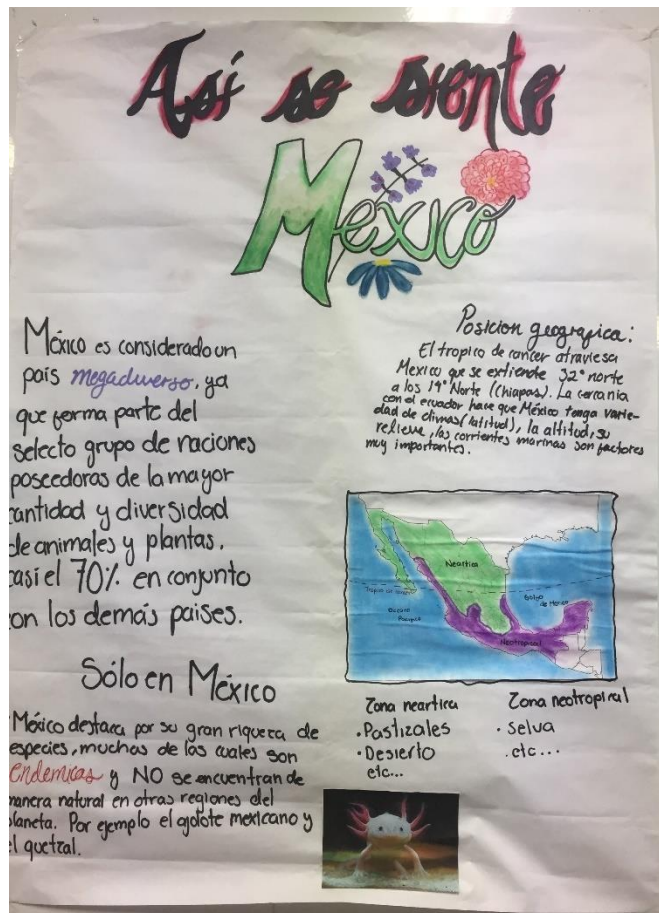 Así se siente
México
México es considerado un
país megadiverso, ya
que forma parte del
selecto grupo de naciones
poseedoras de la mayor
cantidad y diversidad
de animales y plantas,
casi el 70% en conjunto
con los demás paises.
Sólo en México
México destaca por su gran riqueza de
especies, muchas de las cuales son
Endemicas y NO se encuentran de
manera natural en otras regiones del
planeta. Por ejemplo el ajolote mexicano y
el quetzal.
Posicion geografica:
El tropico de cancer atraviesa
Mexico que se extiende 32° norte
a los 14° Norte (Chiapas). La cercania
con el ecuador hace que México tenga varie-
dad de climas (latitud), la altitud, su
relieve, las corrientes marinas son factores
muy importantes.
Neartica
Tropico de cancer
Oceano
Pacifico
Golfo
de Mexico
Neotropical
Zona neartica
• Pastizales
• Desierto
etc...
Zona neotropical
• Selva
. etc...